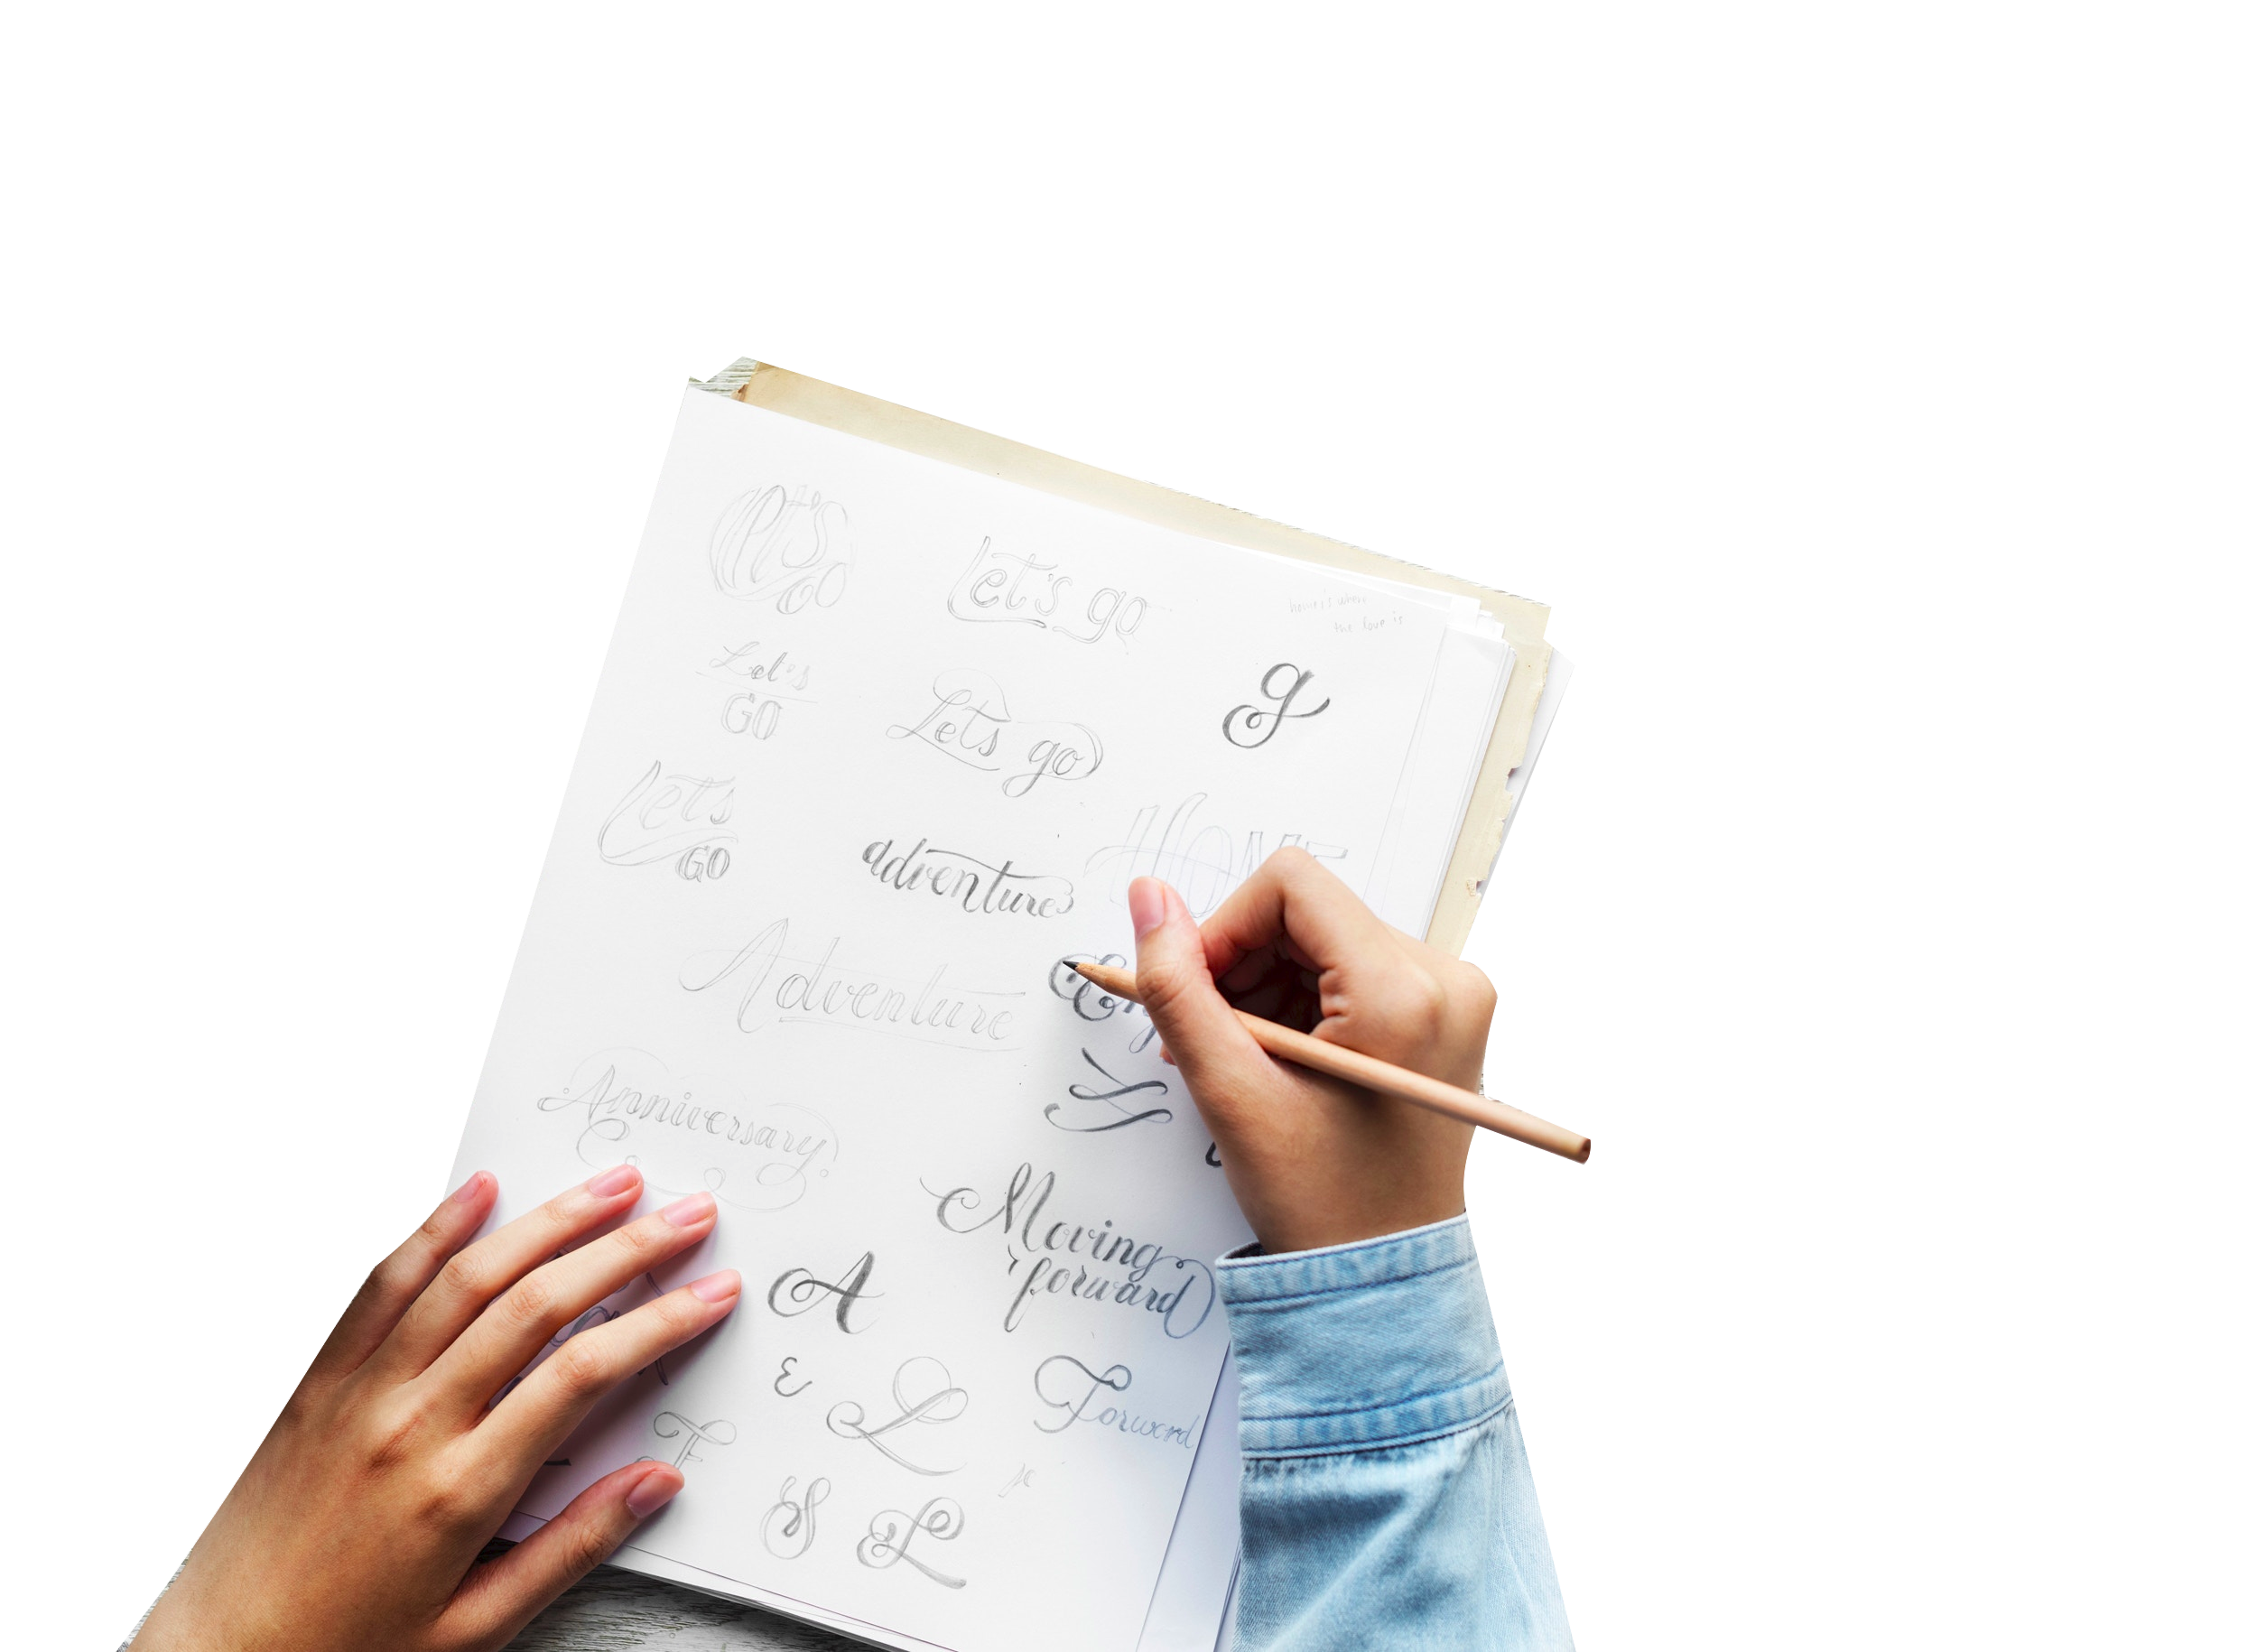 let's
GO
Let's go
home is where
the love is
Let's
GO
Lets go
g
Lets
GO
HOME
adventure
Adventure
Anniversary
Moving
forward
A
L
Forward
F
S
L